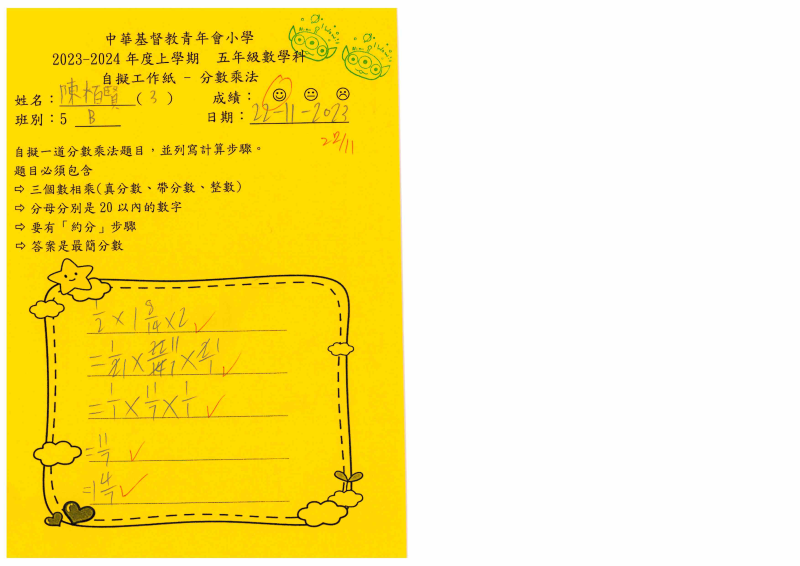 中華基督教青年會小學
2023-2024 年度上學期 五年級數學科
自擬工作紙 - 分數乘法
姓名：陳栢賢 ( 3 ) 成績：
班別：5 B 日期：22-11-2023
22/11
自擬一道分數乘法題目，並列寫計算步驟。
題目必須包含
⇨ 三個數相乘(真分數、帶分數、整數)
⇨ 分母分別是 20 以內的數字
⇨ 要有「約分」步驟
⇨ 答案是最簡分數
1/2 × 1 8/14 × 2
= 1/2 1 × 22 11/14 7 × 2 1/1
= 1/1 × 11/7 × 1/1
= 11/7
= 1 4/7